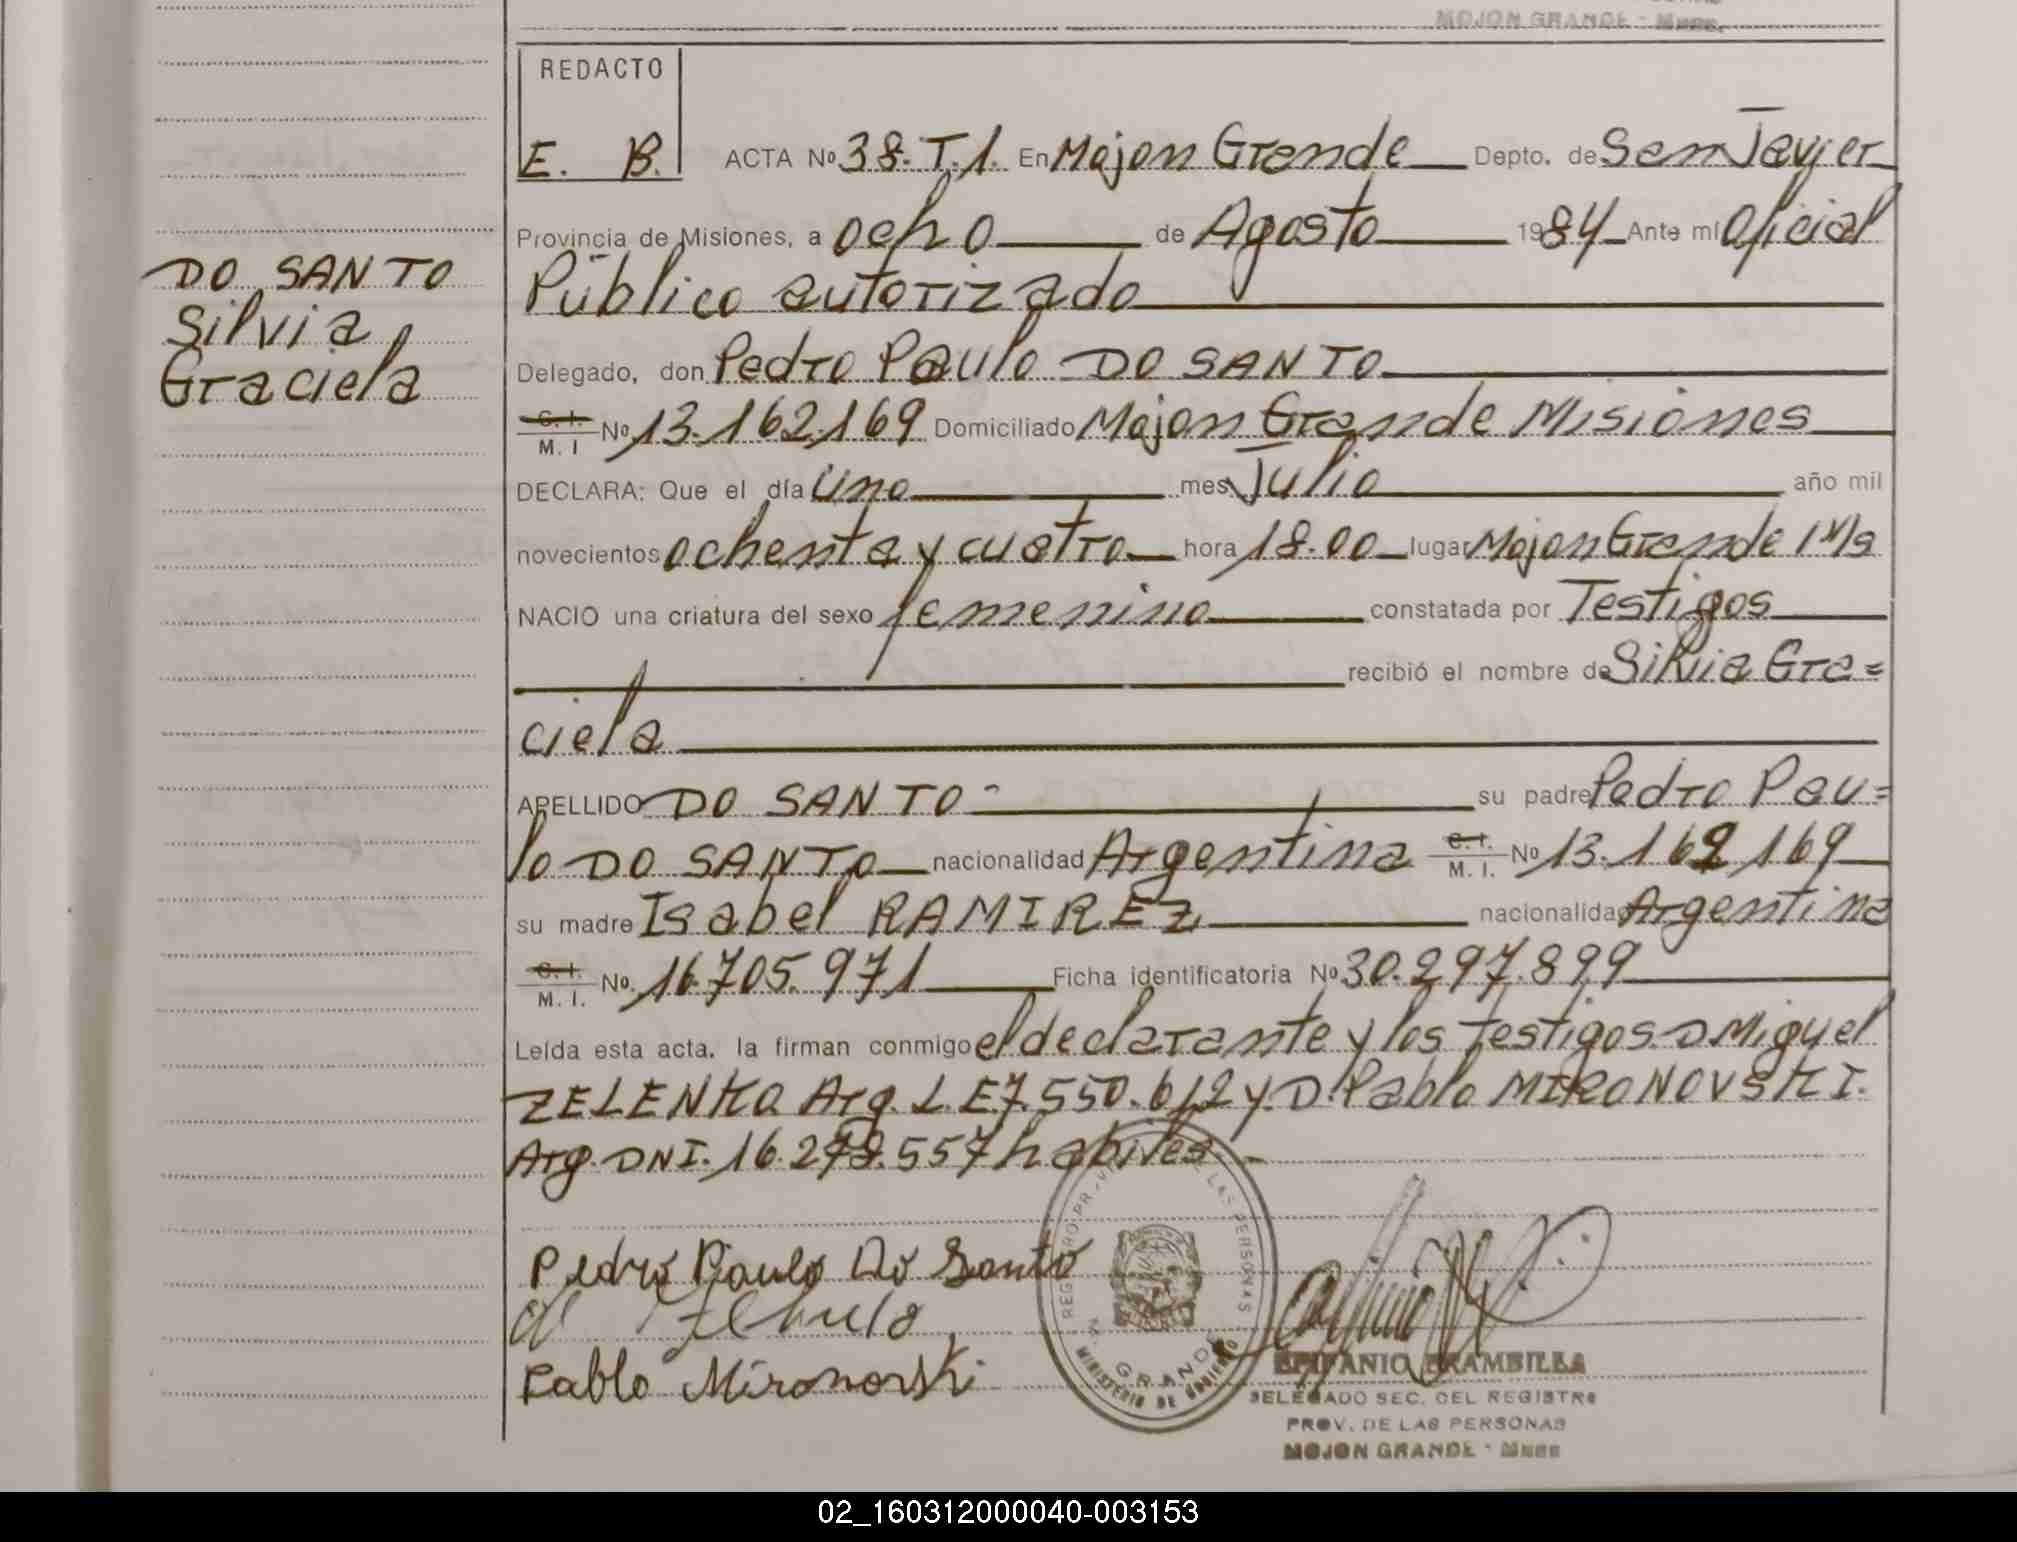 MOJON GRANDE - Mnes.
REDACTO
E. B. ACTA Nº 38. T. 1. En Mojon Grande Depto. de San Javier
Provincia de Misiones, a ocho de Agosto 1984 Ante mí Oficial
Público autorizado
DO SANTO
Silvia
Graciela
Delegado, don Pedro Paulo DO SANTO
C. I. / M. I Nº 13.162.169 Domiciliado Mojon Grande Misiones
DECLARA: Que el día uno mes Julio año mil
novecientos ochenta y cuatro hora 18.00 lugar Mojon Grande Ms
NACIO una criatura del sexo femenino constatada por Testigos
recibió el nombre de Silvia Gra=
ciela
APELLIDO DO SANTO - su padre Pedro Pau=
lo DO SANTO nacionalidad Argentina C. I. / M. I. Nº 13.162.169
su madre Isabel RAMIREZ nacionalidad Argentina
C. I. / M. I. Nº 16.705.971 Ficha identificatoria Nº 30.297.899
Leída esta acta, la firman conmigo el declarante y los testigos D Miguel
ZELENKA Arg. L.E 7.550.612 y D. Pablo MIRONOVSKI.
Arg. DNI. 16.278.557 habiles -
Pedro Paulo Do Santo
Pablo Mironovski
REGISTRO PROV. DE LAS PERSONAS
M. GRANDE
MINISTERIO DE GOBIERNO
EPIFANIO BRAMBILLA
DELEGADO SEC. DEL REGISTRO
PROV. DE LAS PERSONAS
MOJON GRANDE - Mnes
02_160312000040-003153